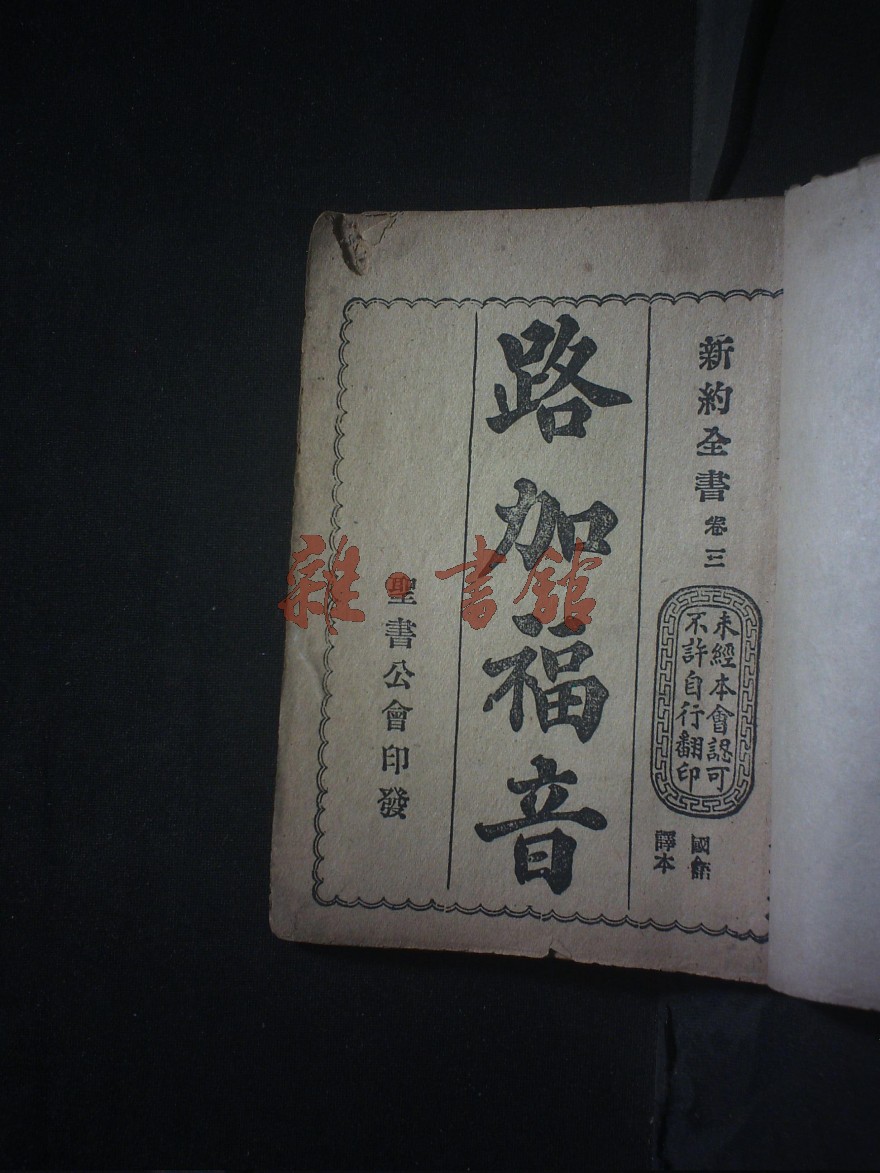 新約全書 卷三
未經本會認可
不許自行翻印
國語
譯本
路加福音
聖書公會印發
雜·書館